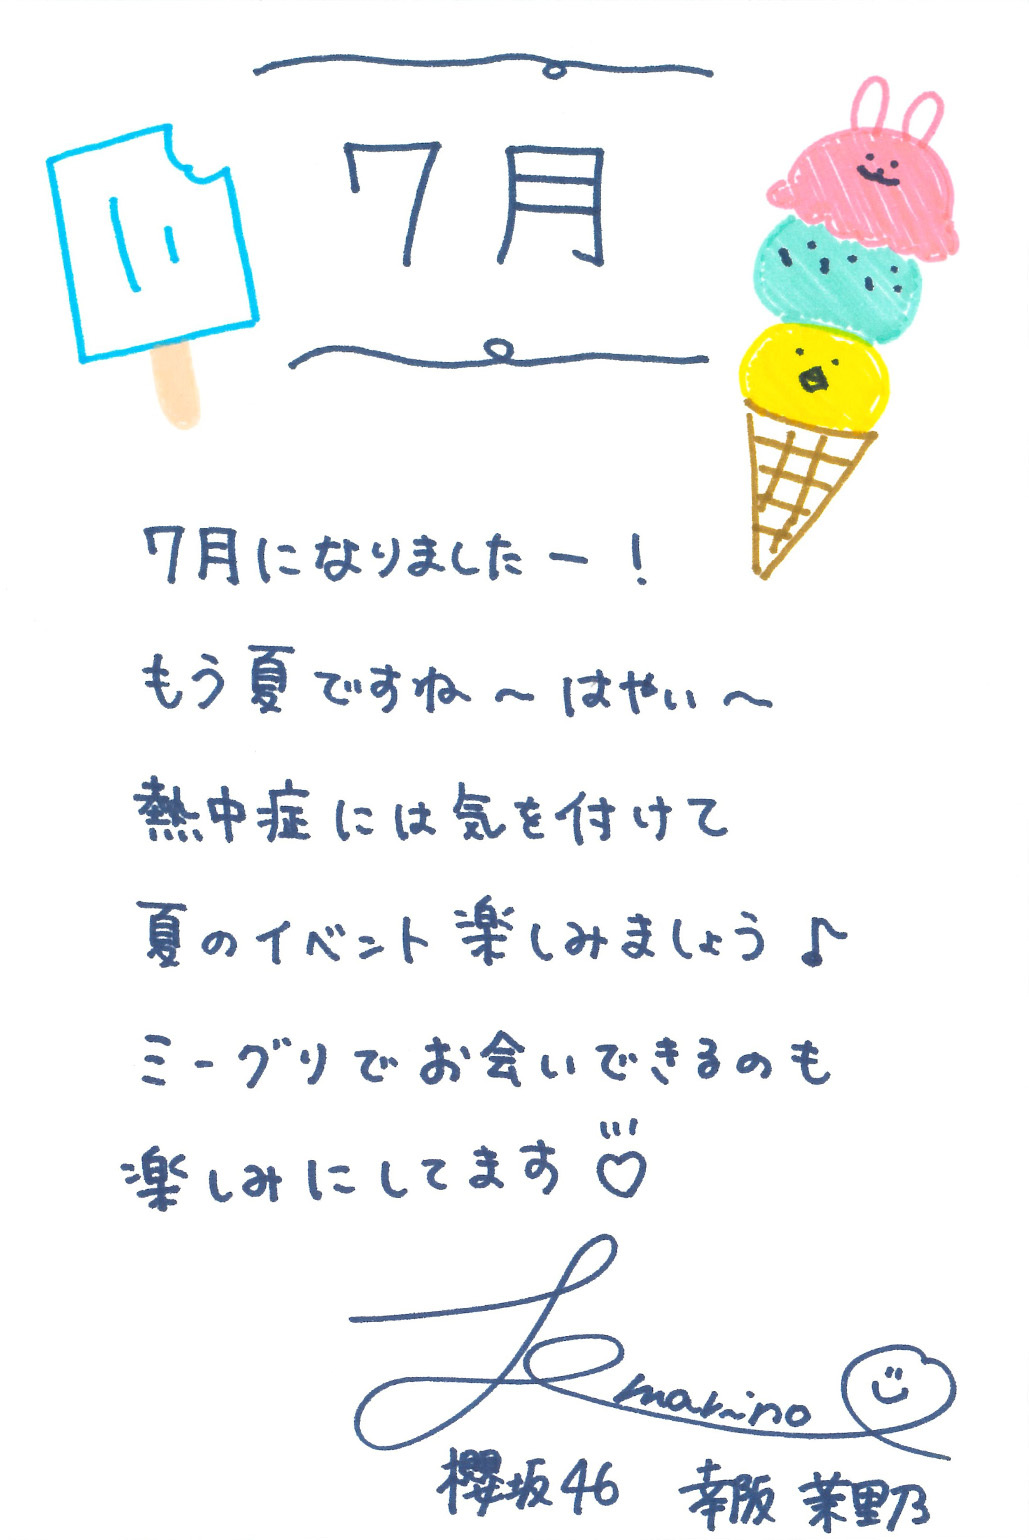 7月
7月になりましたー!
もう夏ですね〜はやい〜
熱中症には気を付けて
夏のイベント楽しみましょう♪
ミーグリでお会いできるのも
楽しみにしてます♡
marino
櫻坂46 幸阪茉里乃